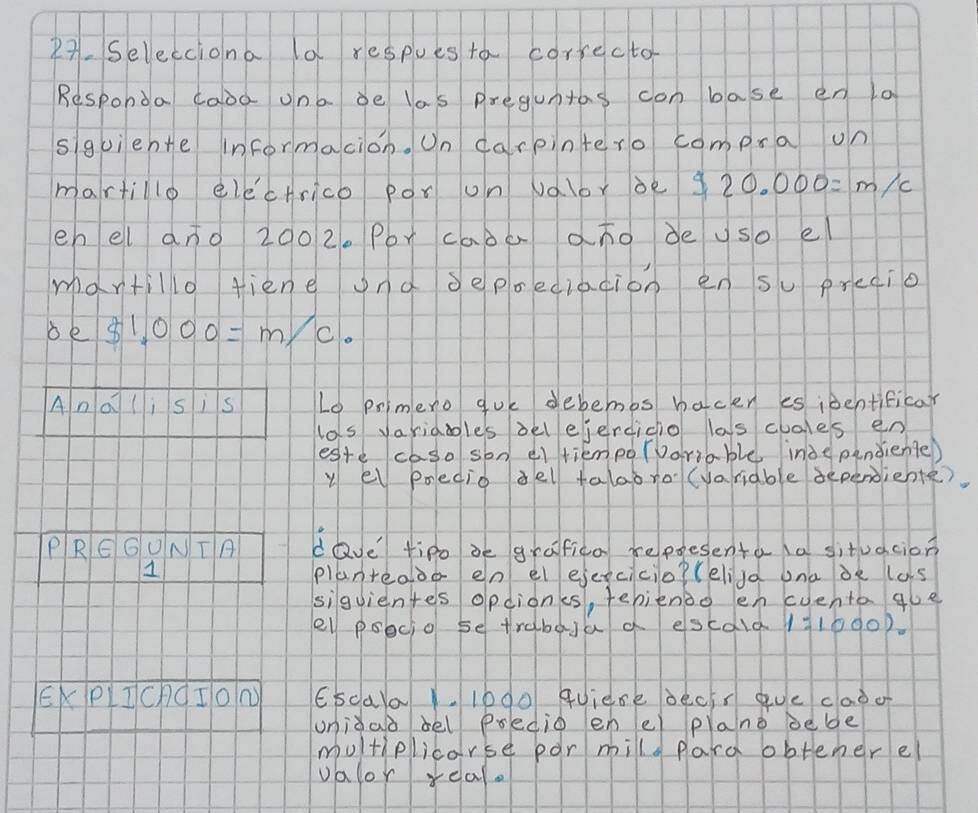 27. Selecciona la respuesta correcta
Responda cada una de las preguntas con base en la
siguiente información. Un carpintero compra un
martillo eléctrico por un valor de $20.000= m/c
en el año 2002. Por cada año de uso el
martillo tiene una depreciación en su precio
de $1.000= m/c.
Análisis
Lo primero que debemos hacer es identificar
las variables del ejercicio las cuales en
este caso son el tiempo (variable independiente)
y el precio del taladro (variable dependiente).
PREGUNTA
1
¿Qué tipo de gráfica representa la situación
planteada en el ejercicio? (elija una de las
siguientes opciones, teniendo en cuenta que
el precio se trabaja a escala 1:1000).
EXPLICACION
Escala 1.1000 quiere decir que cada
unidad del precio en el plano debe
multiplicarse por mil. Para obtener el
valor real.